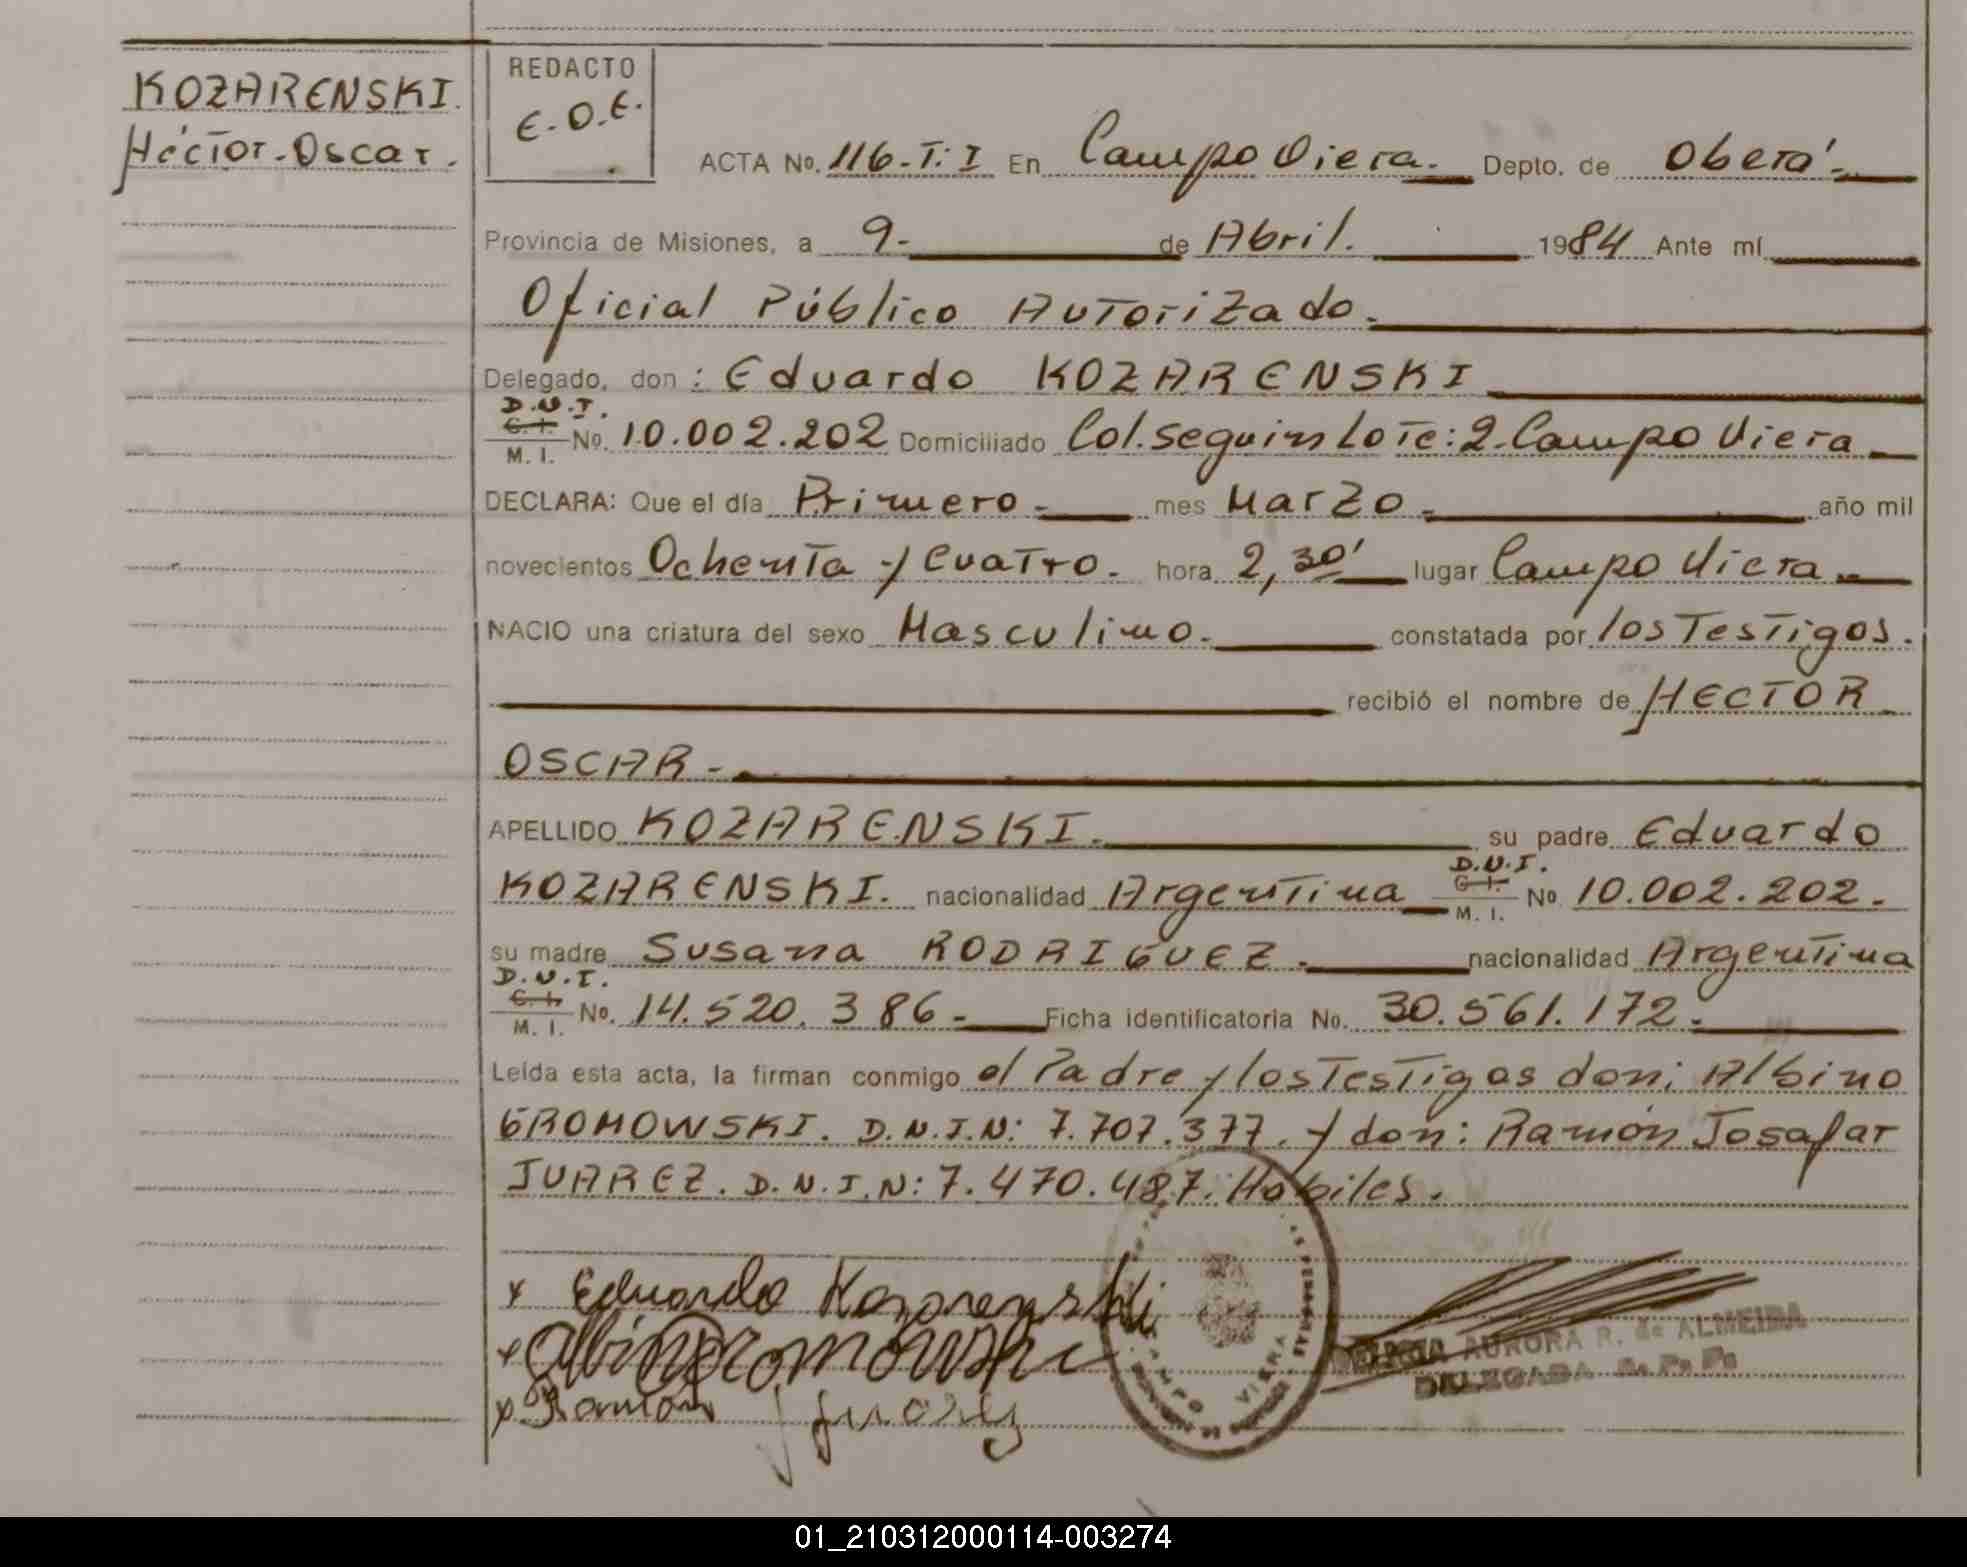 KOZARENSKI.
Héctor-Oscar.
REDACTO
E.O.E.
ACTA No. 116-T:I En Campo Viera. Depto. de Oberá.
Provincia de Misiones, a 9- de Abril. 1984 Ante mí
Oficial Público Autorizado.
Delegado, don: Eduardo KOZARENSKI
D.N.I.
C. I.
M. I. No. 10.002.202 Domiciliado Col. Seguin Lote: 2. Campo Viera
DECLARA: Que el día Primero - mes Marzo - año mil
novecientos Ochenta y Cuatro. hora 2,30' lugar Campo Viera -
NACIO una criatura del sexo Masculino. constatada por los Testigos.
recibió el nombre de HECTOR
OSCAR -
APELLIDO KOZARENSKI. su padre Eduardo
D.N.I.
KOZARENSKI. nacionalidad Argentina C. I. M. I. No 10.002.202.
su madre Susana RODRIGUEZ. nacionalidad Argentina
D.N.I.
C. I.
M. I. No. 14.520.386 - Ficha identificatoria No. 30.561.172.
Leída esta acta, la firman conmigo el Padre y los Testigos don: Albino
GROMOWSKI. D.N.I.N: 7.707.377. y don: Ramón Josafar
JUAREZ. D.N.I.N: 7.470.487. Habiles.
x Eduardo Kozarenski
x Albino Gromowski
x Ramón J Juarez
CAMPO VIERA
AURORA R. de ALMEIDA
DELEGADA
01_210312000114-003274